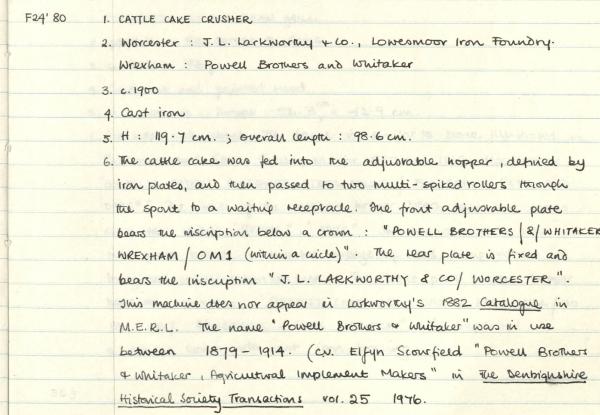 F24'80 1. CATTLE CAKE CRUSHER
2. Worcester : J.L. Larkworthy & Co., Lowesmoor Iron Foundry.
Wrexham : Powell Brothers and Whitaker
3. c.1900
4. Cast iron
5. H : 119.7 cm. ; overall length : 98.6 cm.
6. The cattle cake was fed into the adjustable hopper, defined by
iron plates, and then passed to two multi-spiked rollers through
the spout to a waiting receptacle. The front adjustable plate
bears the inscription below a crown : "POWELL BROTHERS/&/WHITAKER
WREXHAM/ OM1 (within a circle)". The rear plate is fixed and
bears the inscription "J.L. LARKWORTHY & CO/ WORCESTER".
This machine does not appear in Larkworthy's 1882 Catalogue in
M.E.R.L. The name "Powell Brothers & Whitaker" was in use
between 1879-1914. (cv. Elfyn Scourfield "Powell Brothers
& Whitaker, Agricultural Implement Makers" in The Denbighshire
Historical Society Transactions vol. 25 1976.